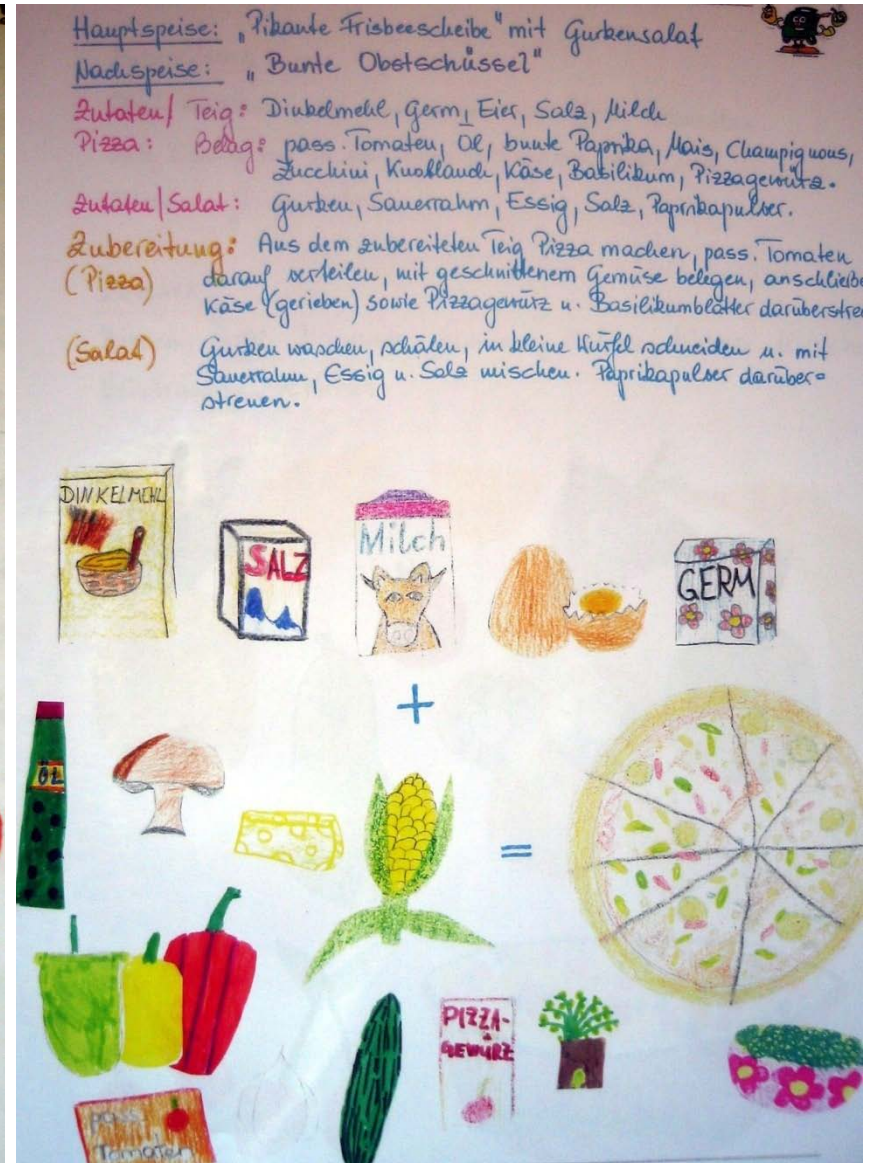 Hauptspeise: „Pikante Frisbeescheibe" mit Gurkensalat
Nachspeise: „Bunte Obstschüssel"
Zutaten/ Teig: Dinkelmehl, Germ, Eier, Salz, Milch
Pizza: Belag: pass. Tomaten, Öl, bunte Paprika, Mais, Champignons,
Zucchini, Knoblauch, Käse, Basilikum, Pizzagewürz.
Zutaten/Salat: Gurken, Sauerrahm, Essig, Salz, Paprikapulver.
Zubereitung: Aus dem zubereiteten Teig Pizza machen, pass. Tomaten
(Pizza) darauf verteilen, mit geschnittenem Gemüse belegen, anschließe
Käse (gerieben) sowie Pizzagewürz u. Basilikumblätter darüberstre
(Salat) Gurken waschen, schälen, in kleine Würfel schneiden u. mit
Sauerrahm, Essig u. Salz mischen. Paprikapulver darüber=
streuen.
DINKELMEHL
SALZ
Milch
GERM
ÖL
PIZZA-
GEWÜRZ
pass.
Tomaten